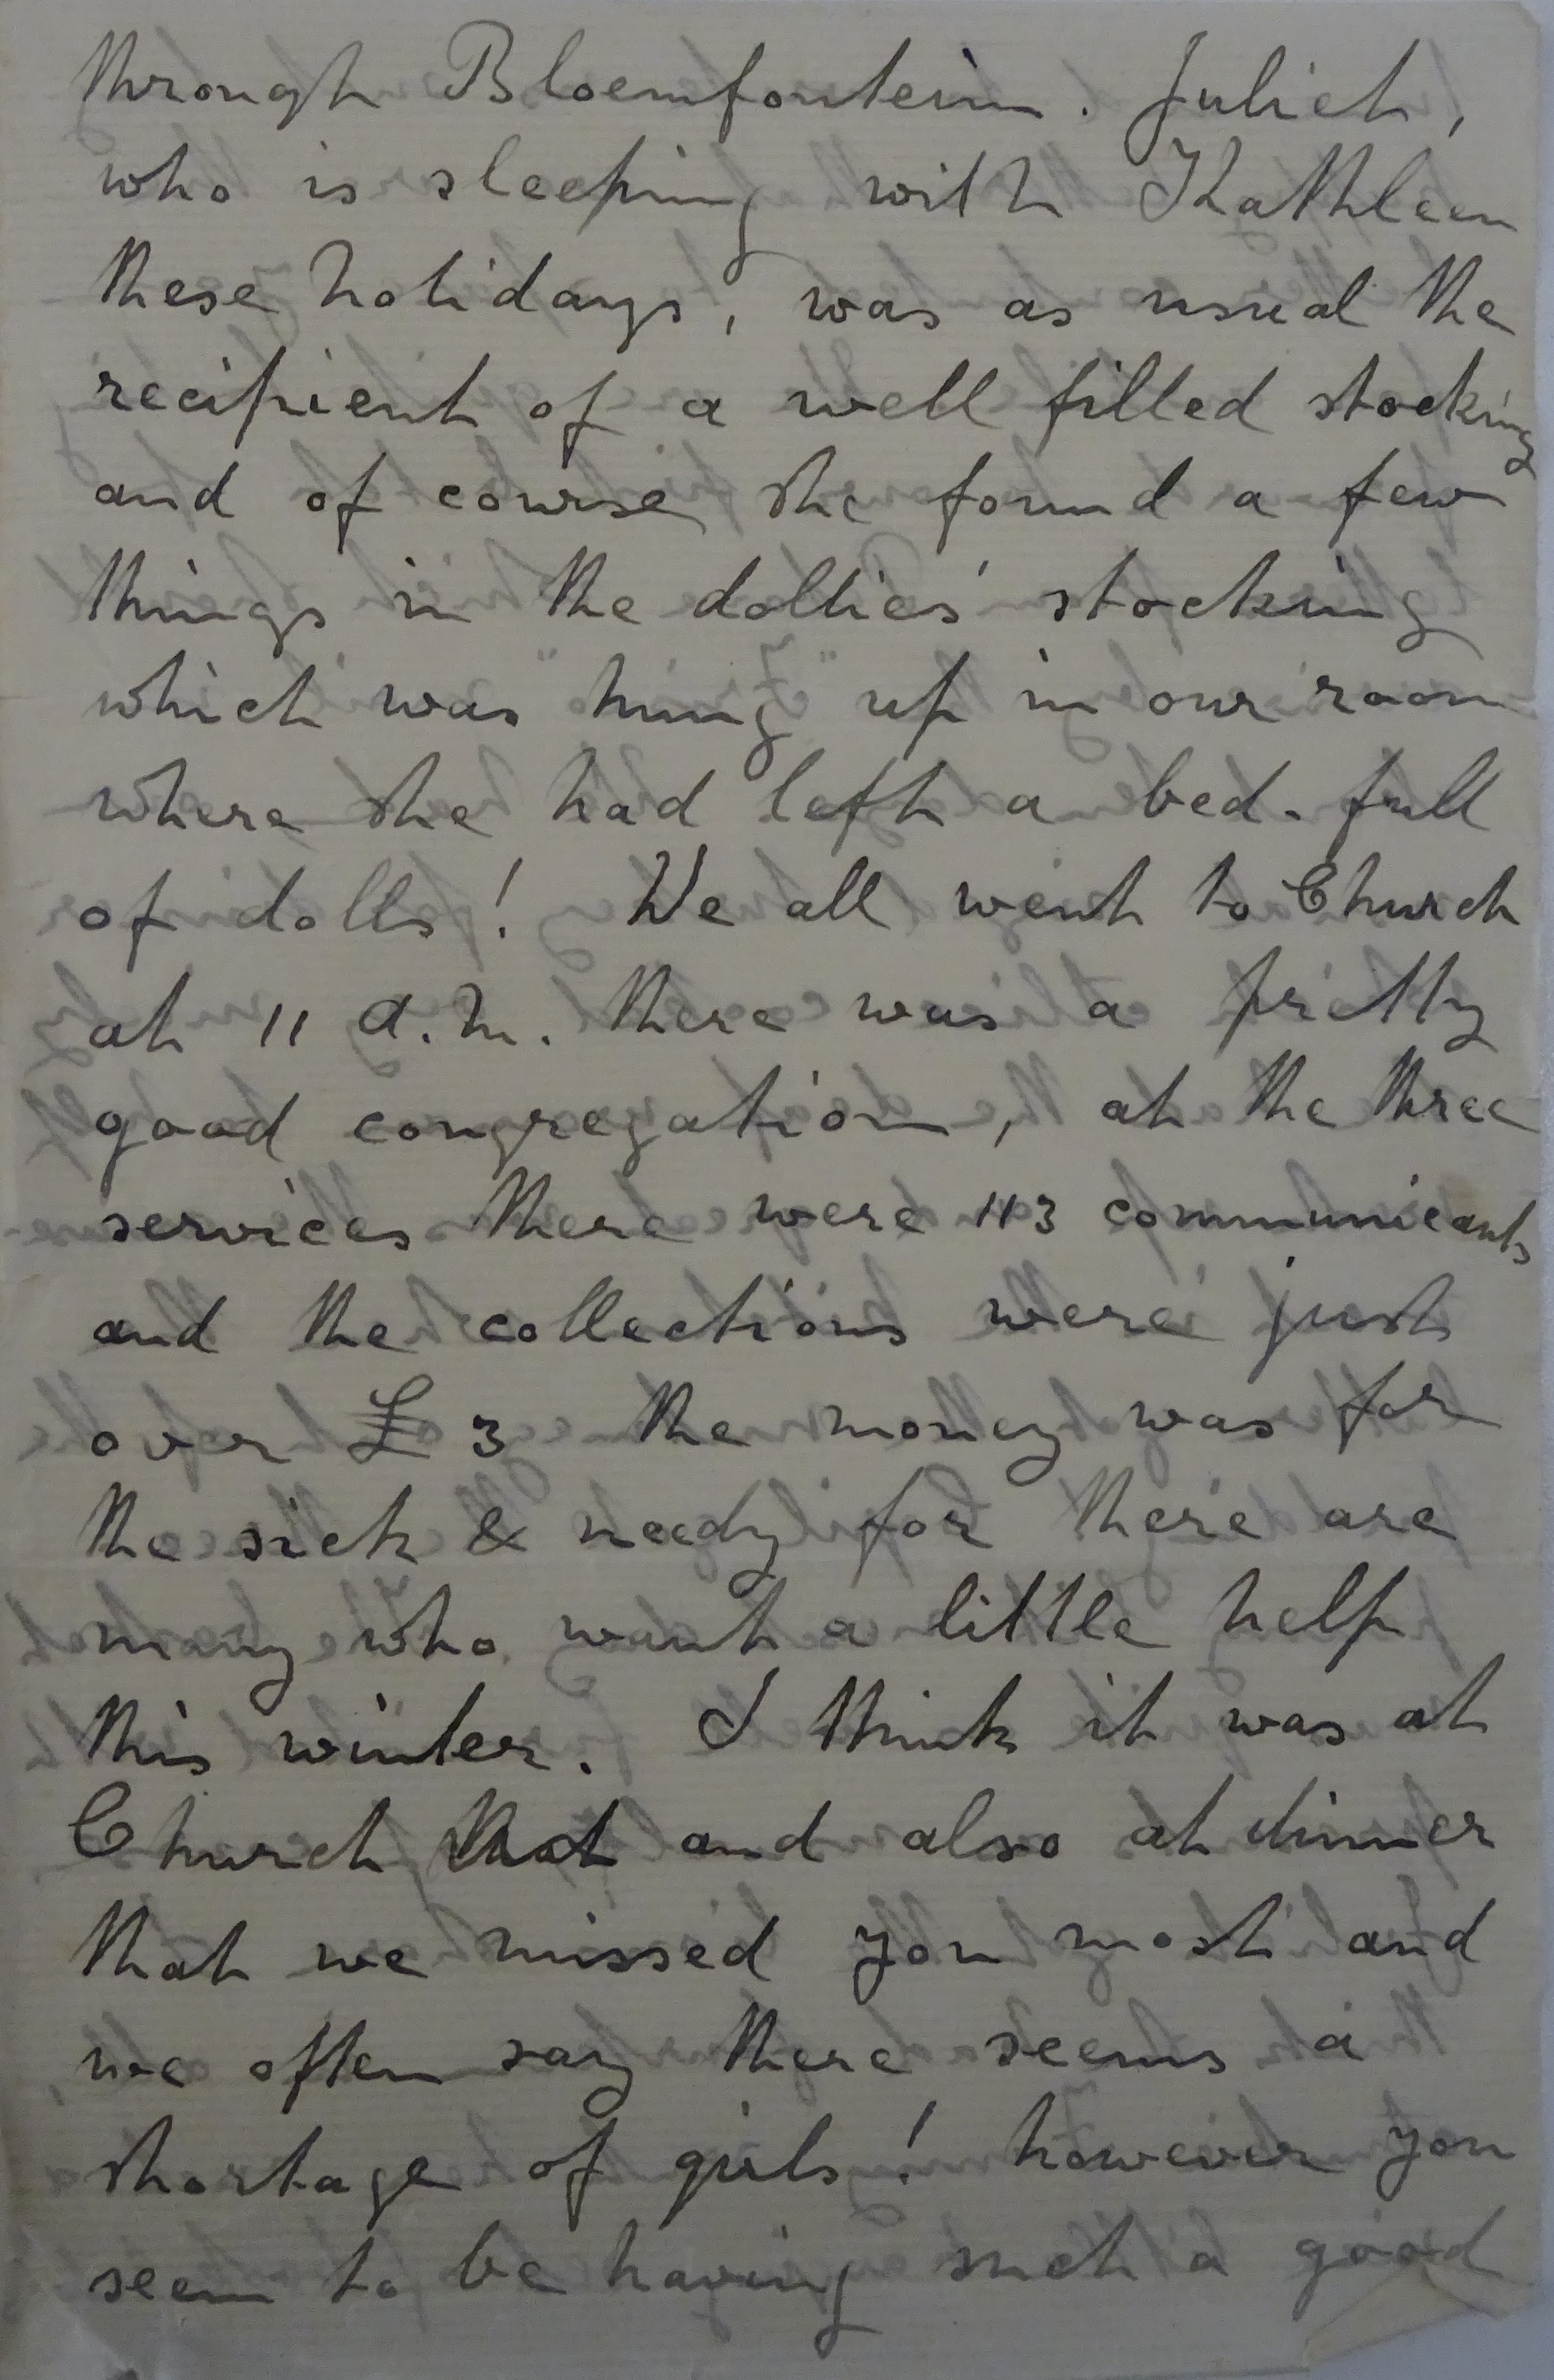 through Bloemfontein. Juliet,
who is sleeping with Kathleen
these holidays, was as usual the
recipient of a well filled stocking
and of course she found a few
things in the dollies' stocking
which was hung up in our room
where she had left a bed-full
of dolls! We all went to Church
at 11 a.m. there was a pretty
good congregation, at the three
services there were 113 communicants
and the collections were just
over £3 the money was for
the sick & needy for there are
many who want a little help
this winter. I think it was at
Church that and also at dinner
that we missed you most and
we often say there seems a
shortage of girls! however you
seem to be having such a good